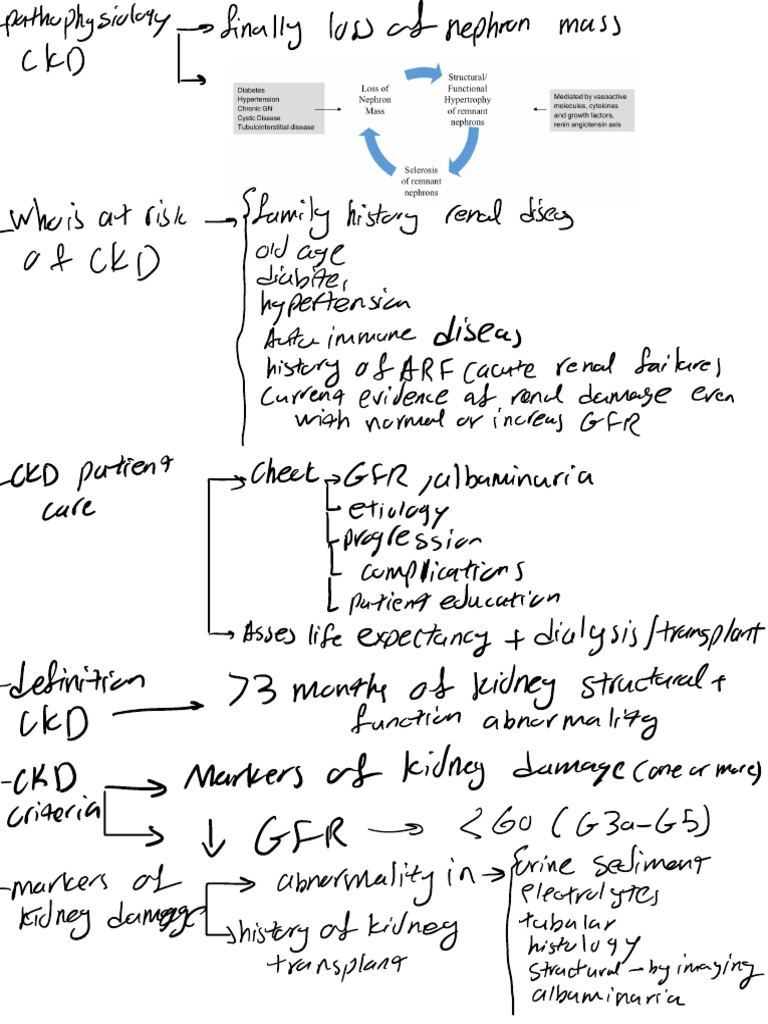 -pathophysiology → finally loss of nephron mass
CKD
Diabetes
Hypertension
Chronic GN
Cystic Disease
Tubulointerstitial disease
Loss of
Nephron
Mass
Structural/
Functional
Hypertrophy
of remnant
nephrons
Mediated by vasoactive
molecules, cytokines
and growth factors,
renin angiotensin axis
Sclerosis
of remnant
nephrons
-who is at risk → family history renal diseas
of CKD
old age
diabites
hypertension
Auto immune diseas
history of ARF (acute renal failure)
Current evidence of renal damage even
with normal or increas GFR
-CKD patient → Check → GFR, albuminuria
care
etiology
progression
complications
patient education
→ Asses life expectancy + dialysis/transplant
-definition → >3 months of kidney structural +
CKD
function abnormality
-CKD → Markers of kidney damage (one or more)
criteria
→ ↓ GFR → <60 (G3a-G5)
-markers of → abnormality in → urine sediment
kidney damage
electrolytes
tubular
histology
structural - by imaging
albuminaria
→ history of kidney
transplant